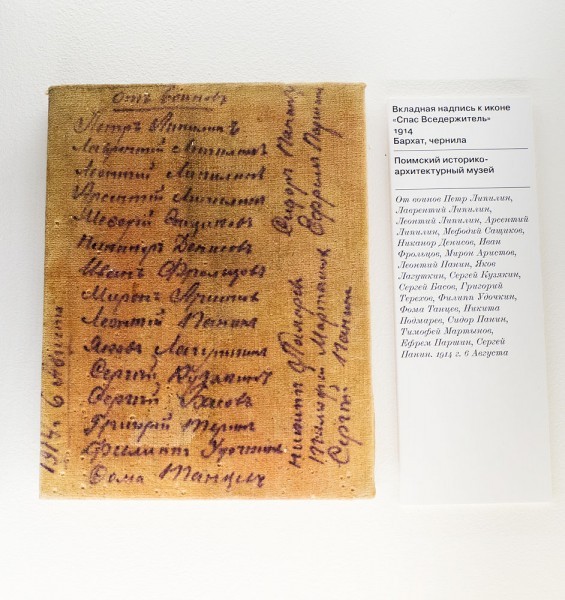 отъ воиновъ
Петръ Липилинъ
Лаврентій Липилинъ
Леонтій Липилинъ
Арсентій Липилинъ
Мефодій Сащиковъ
Никаноръ Денисовъ
Иванъ Фрольцовъ
Миронъ Аристовъ
Леонтій Панинъ
Яковъ Лагушкинъ
Сергій Кузякинъ
Сергій Басовъ
Григорій
Филиппъ Удочкинъ
Фома Танцевъ
1914 г. 6 Августа
Сидоръ Панинъ
Ефремъ Паршинъ
Никита
Тимофей Мартынов
Сергій Панинъ
Вкладная надпись к иконе
«Спас Вседержитель»
1914
Бархат, чернила
Поимский историко-
архитектурный музей
От воинов Петр Липилин,
Лаврентий Липилин,
Леонтий Липилин, Арсентий
Липилин, Мефодий Сащиков,
Никанор Денисов, Иван
Фрольцов, Мирон Аристов,
Леонтий Панин, Яков
Лагушкин, Сергей Кузякин,
Сергей Басов, Григорий
Терехов, Филипп Удочкин,
Фома Танцев, Никита
Подмарев, Сидор Панин,
Тимофей Мартынов,
Ефрем Паршин, Сергей
Панин. 1914 г. 6 Августа